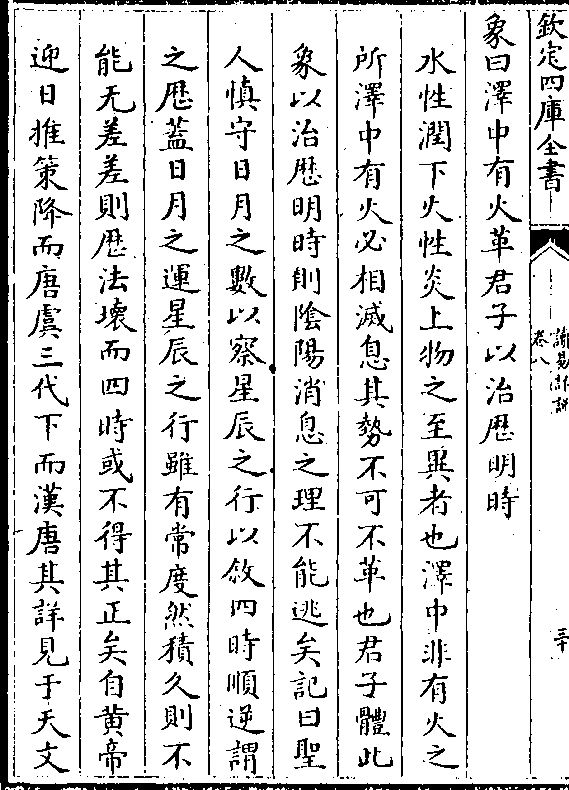 欽定四庫全書
讀易詳說
卷八
三十
象曰澤中有火革君子以治歴明時
水性潤下火性炎上物之至異者也澤中非有火之
所澤中有火必相滅息其勢不可不革也君子體此
象以治歴明時則陰陽消息之理不能逃矣記曰聖
人慎守日月之數以察星辰之行以敘四時順逆謂
之歴蓋日月之運星辰之行雖有常度然積久則不
能无差差則歴法壊而四時或不得其正矣自黃帝
迎日推策降而唐虞三代下而漢唐其詳見于天文